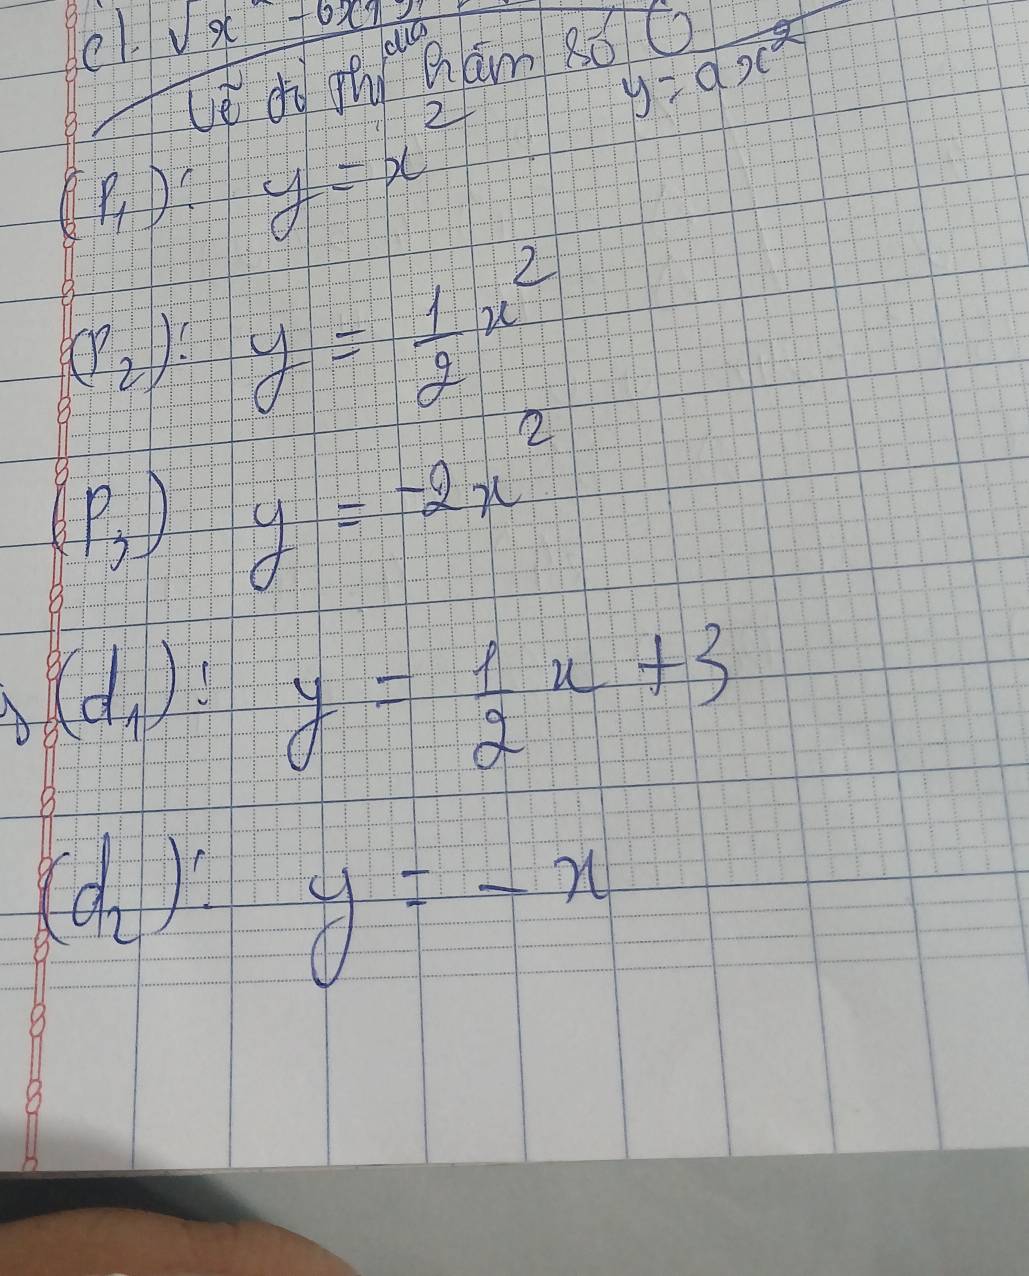 c). √x² - 6x + 9
Vẽ đồ thị của hàm số y = ax²
(P₁): y = x²
(P₂): y = 1/2 x²
(P₃) y = -2x²
(d₁): y = 1/2 x + 3
(d₂): y = - x